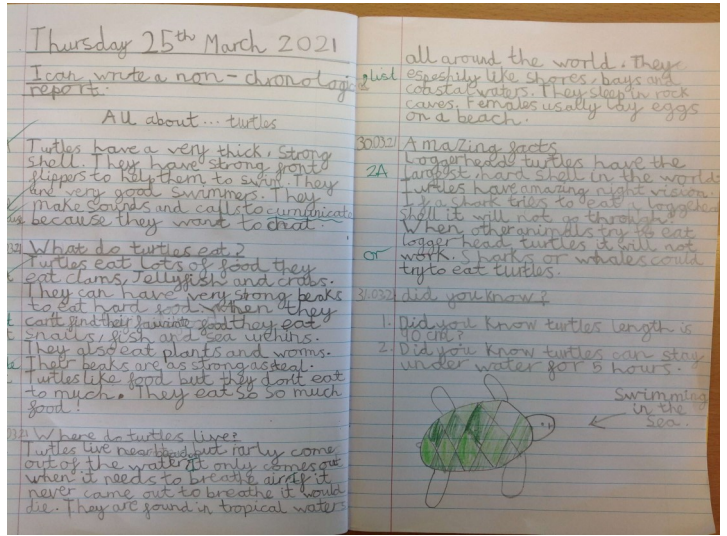 Thursday 25th March 2021
I can write a non-chronologic
report.
All about... turtles
Turtles have a very thick, strong
shell. They have strong front
flippers to help them to swim. They
are very good swimmers. They
make sounds and calls to cumunicate
because they want to chat.
What do turtles eat?
Turtles eat lots of food they
eat clams, Jellyfish and crabs.
They can have very strong beaks
to eat hard food. When they
can't find their favourite food they eat
snails, fish and sea urchins.
They also eat plants and worms.
Their beaks are as strong as steal.
Turtles like food but they don't eat
to much. They eat so so much
food!
Where do turtles live?
Turtles live near but rarly come
out of the water it only comes out
when it needs to breathe air if it
never came out to breathe it would
die. They are found in tropical waters
all around the world. They
list
espeshily like shores, bays and
coastal waters. They sleep in rock
caves. Females usally lay eggs
on a beach.
30.03.21 Amazing facts
Loggerheads turtles have the
2A
largest, hard shell in the world.
Turtles have amazing night vision.
If a shark tries to eat a loggerhead
shell it will not go through.
When other animals try to eat
logger head turtles it will not
or
work. Sharks or whales could
try to eat turtles.
31.03.21 did you know?
1. Did you know turtles length is
90 cm?
2. Did you know turtles can stay
under water for 5 hours.
Swimming
in the
sea.